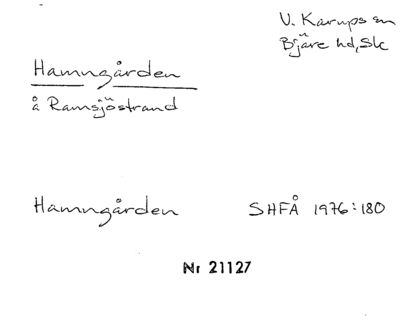 V. Karups sn
Bjäre hd, Sk
Hamngården
å Ramsjöstrand
Hamngården SHFÅ 1976:180
Nr 21127